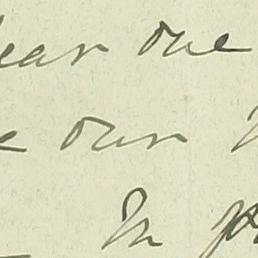 ear one
e our
In